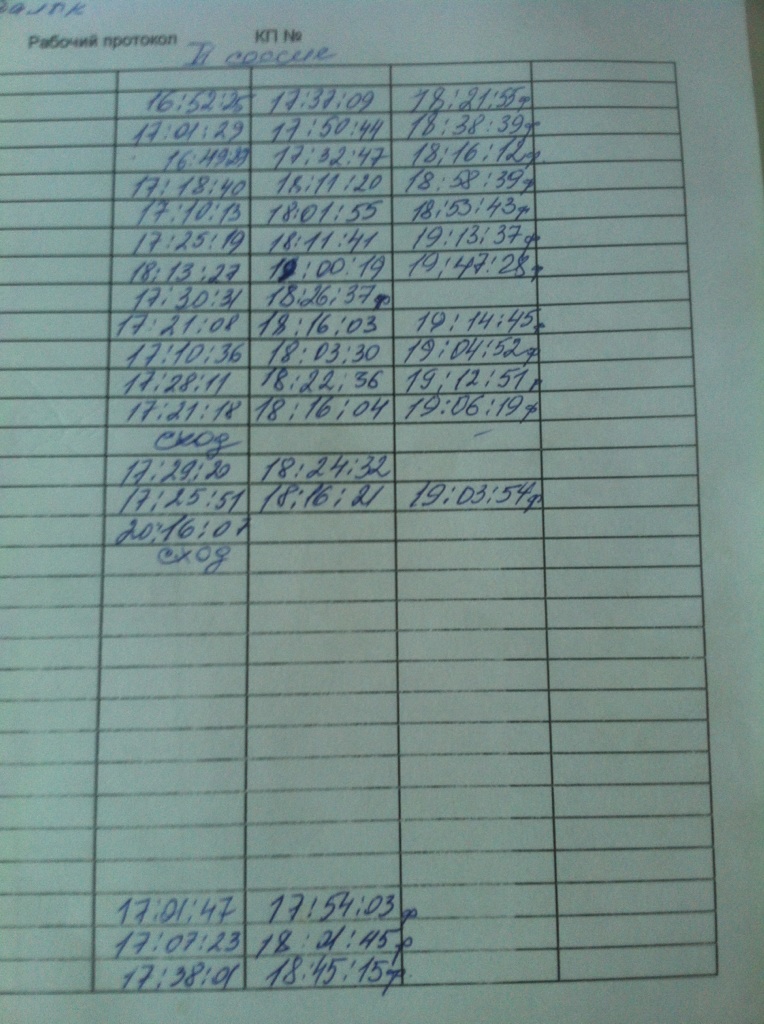 Рабочий протокол КП №
II сессия
16:52:25 17:37:09 18:21:55ф
17:01:29 17:50:44 18:38:39ф
16:49:29 17:32:47 18:16:12ф
17:18:40 18:11:20 18:58:39ф
17:10:13 18:01:55 18:53:43ф
17:25:19 18:11:41 19:13:37ф
18:13:27 19:00:19 19:47:28ф
17:30:31 18:26:37ф
17:21:08 18:16:03 19:14:45ф
17:10:36 18:03:30 19:04:52ф
17:28:11 18:22:36 19:12:51ф
17:21:18 18:16:04 19:06:19ф
сход –
17:29:20 18:24:32
17:25:51 18:16:21 19:03:54ф
20:16:07
сход
17:01:47 17:54:03ф
17:07:23 18:01:45ф
17:38:01 18:45:15ф